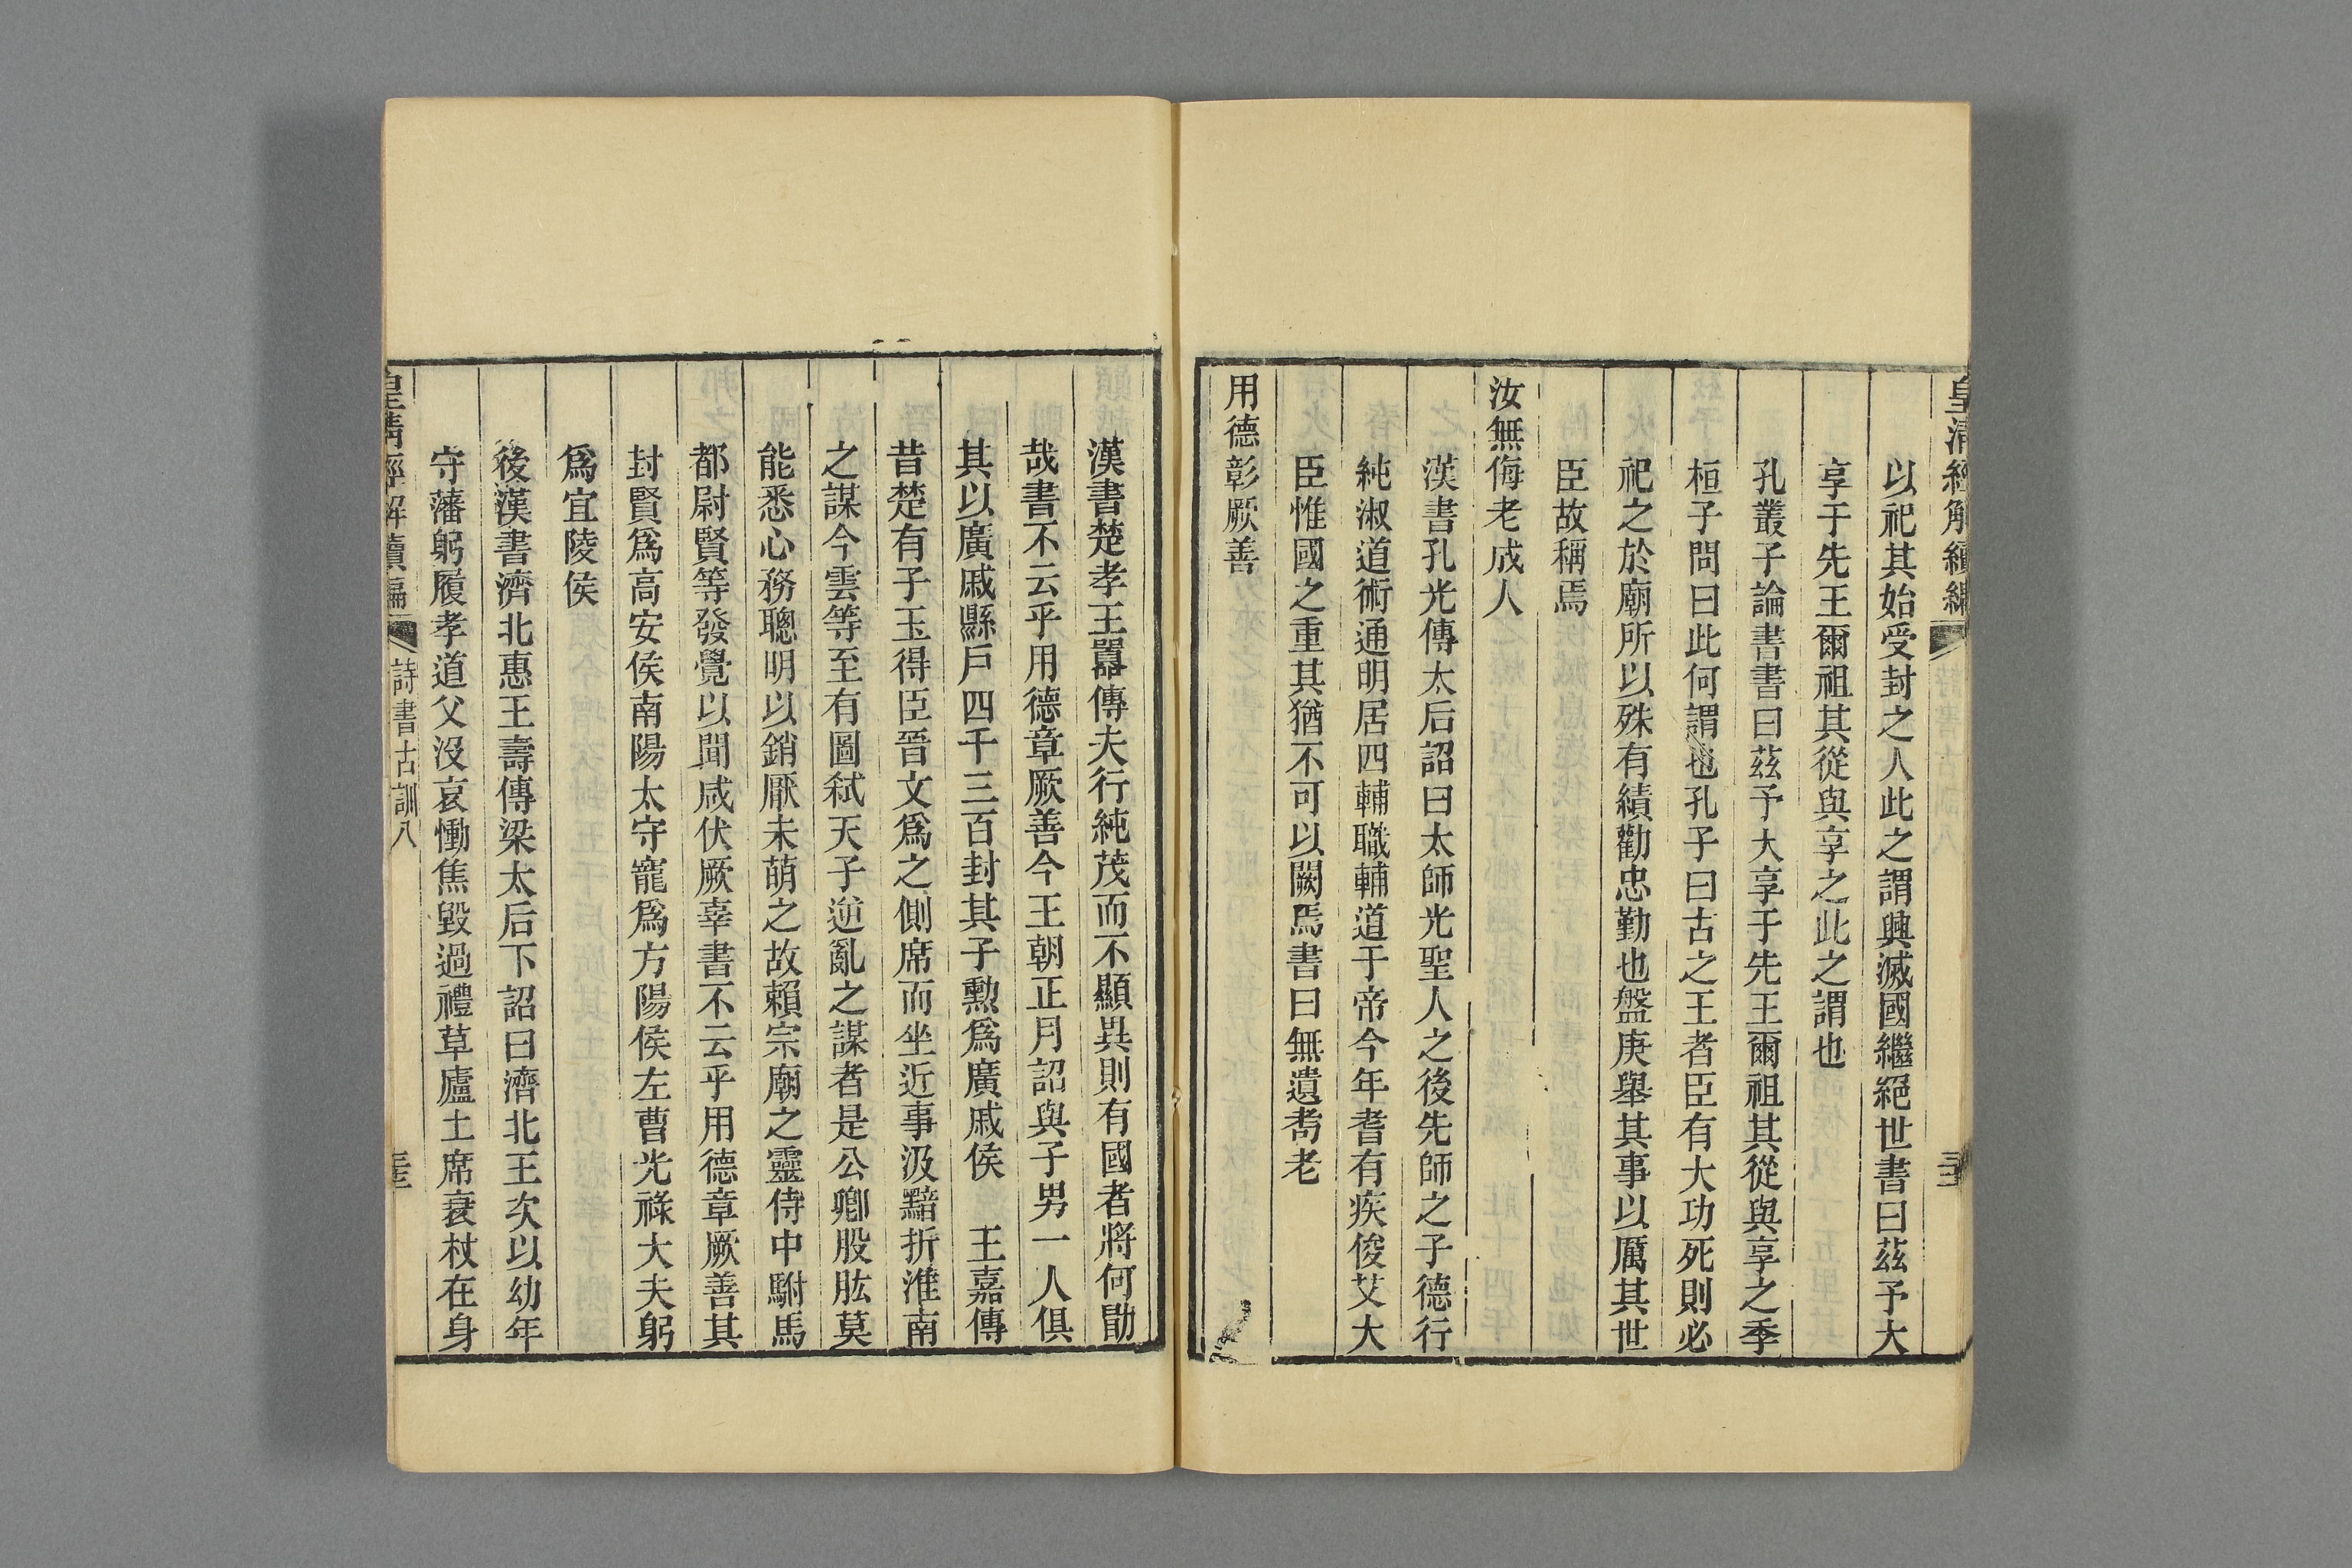 皇清經解續編
以祀其始受封之人此之謂興滅國繼絕世書曰茲予大
享于先王爾祖其從與享之此之謂也
孔叢子論書書曰茲予大享于先王爾祖其從與享之季
桓子問曰此何謂也孔子曰古之王者臣有大功死則必
祀之於廟所以殊有績勸忠勤也盤庚舉其事以厲其世
臣故稱焉
汝無侮老成人
漢書孔光傳太后詔曰太師光聖人之後先師之子德行
純淑道術通明居四輔職輔道于帝今年耆有疾俊艾大
臣惟國之重其猶不可以闕焉書曰無遺耇老
用德彰厥善
漢書楚孝王囂傳夫行純茂而不顯異則有國者將何勖
哉書不云乎用德章厥善今王朝正月詔與子男一人俱
其以廣戚縣戶四千三百封其子勲爲廣戚侯　王嘉傳
昔楚有子玉得臣晉文爲之側席而坐近事汲黯折淮南
之謀今雲等至有圖弒天子逆亂之謀者是公卿股肱莫
能悉心務聰明以銷厭未萌之故賴宗廟之靈侍中駙馬
都尉賢等發覺以聞咸伏厥辜書不云乎用德章厥善其
封賢爲高安侯南陽太守寵爲方陽侯左曹光祿大夫躬
爲宜陵侯
後漢書濟北惠王壽傳梁太后下詔曰濟北王次以幼年
守藩躬履孝道父沒哀慟焦毀過禮草廬土席衰杖在身
皇清經解續編　詩書古訓八